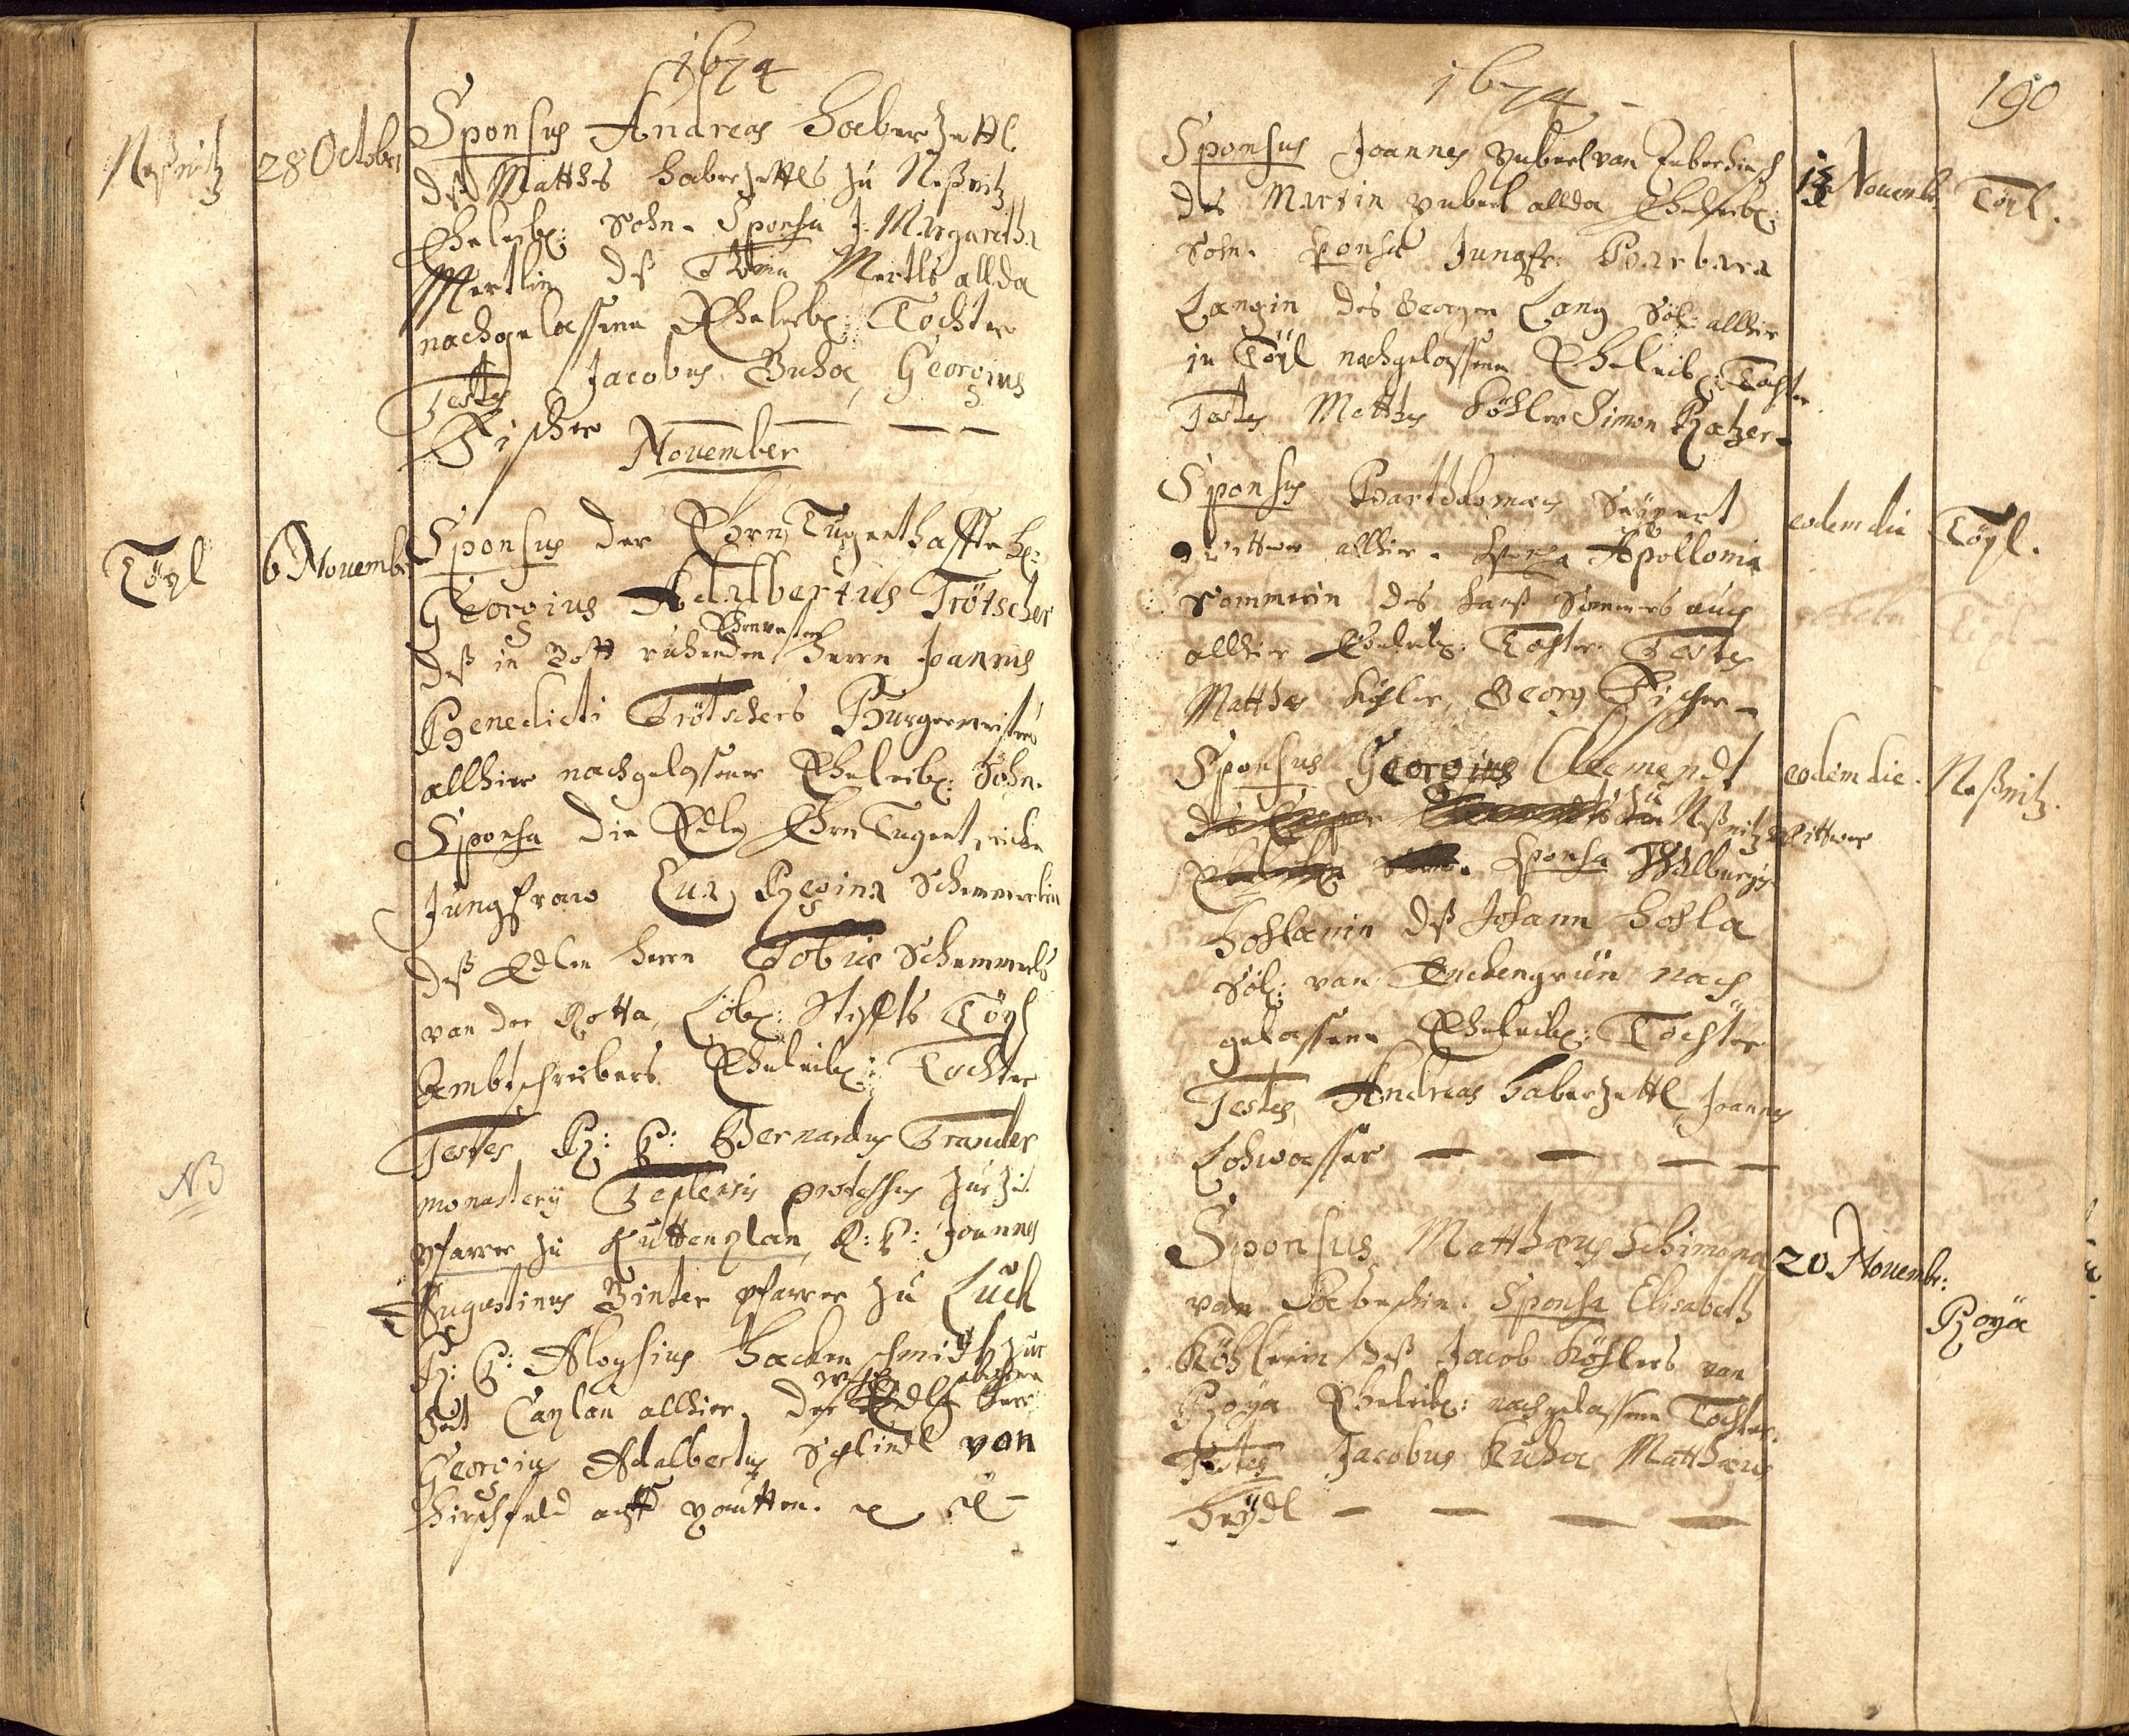 1674
Neßnitz
28 October
Sponsus Andreas Haberzettl
deß Matthes Haberzettls zu Neßnitz
Eheleibl: Sohn. Sponsa J. Margaretha
Mertlin deß Thoma Mertls allda
nachgelassene Eheleibl: Tochter
Testes Jacobus Kuha, Georgius
Fischer
November
Töpl
6 Novemb:
Sponsus der Ehrn Tugenthaffte H:
Georgius Adalbertus Trötscher
Ehrnvesten
deß in Gott ruhenden Herrn Joannis
Benedicti Trötschers Burgermeisters
allhier nachgelassener Eheleibl: Sohn.
Sponsa die Edle Ehrn Tugentreiche
Jungfraw Eva Regina Schemmerlin
deß Edlen Herrn Tobiæ Schemmerls
van der Rotta, Löbl: Stiffts Töpl
Ambtschreibers Eheleibl: Tochter
Testes R: P: Bernardus Trauder
monasterij Teplensis professus zur Zeit
NB
Pfarrer zu Kuttenplan, R: P: Joannes
Augustinus Binter Pfarrer zu Luck
R: P: Aloysius Hackenschmidt zur
Zeit Caplan allhier. Der Edle Herr
Georgius Adalbertus Schindl von
Hirschfeld auff
1674
190
Sponsus Joannes
des Martin allda Eheleibl:
Sohn. Sponsa Jungfr: Barbara
Langin des Georgen Lang Söl: allhier
in Töpl nachgelassene Eheleibl: Tochter
Testes Matthes Köhler Simon Ratzer
Novemb:
Töpl.
Sponsus Bartholomæus Seÿpert
Wittwer allhier. Sponsa Apollonia
Sommerin des Hanß Sommers auch
allhier Eheleibl: Tochter. Testes
Matthes Köhler, Georg Fischer
eodem die
Töpl.
Sponsus Georgius Clemendt
zu Neßnitz Wittwer
Sponsa Walburga
Hohlanin deß Johann Hohla
Söl: van Enckengrün nach
gelassene Eheleibl: Tochter
Testes Andreas Haberzettl Joannes
Lohwasser
eodem die.
Neßnitz.
Sponsus Matthæus Schimona
van Sponsa Elisabeth
Köhlerin deß Jacob Köhlers van
Roÿa Eheleibl: nachgelassene Tochter.
Testes Jacobus Kuha Matthæus
20 Novemb:
Roÿa